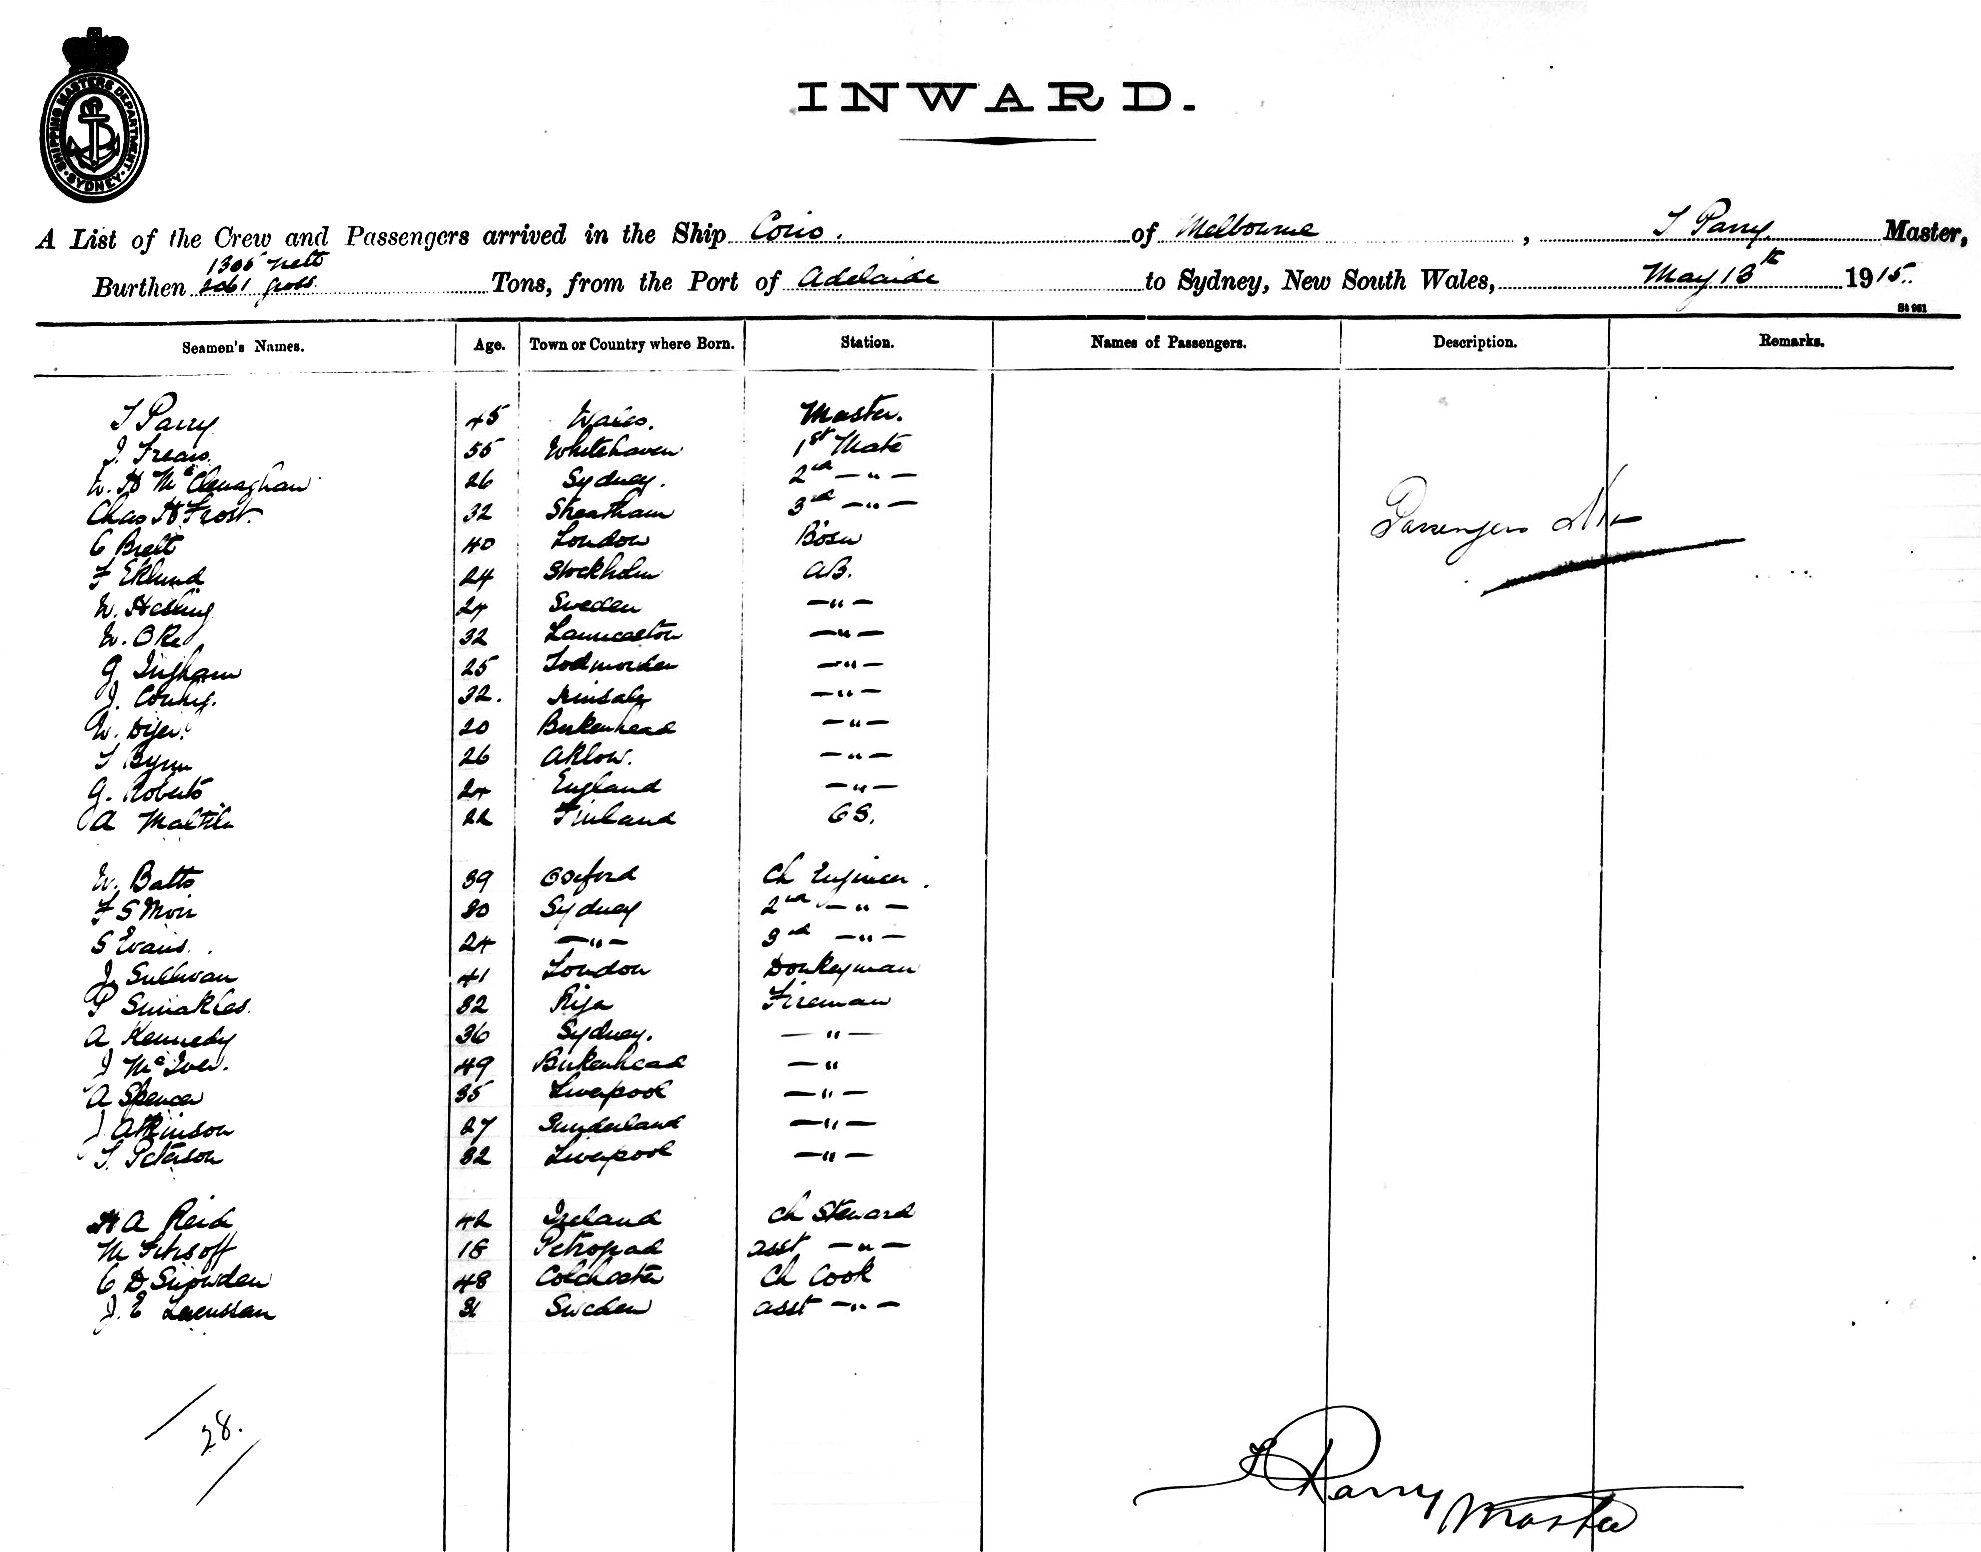 SHIPPING MASTERS DEPARTMENT · SYDNEY ·
INWARD.
A List of the Crew and Passengers arrived in the Ship Corio. of Melbourne, T Parry. Master,
1306 nett
Burthen 2061 gross Tons, from the Port of Adelaide to Sydney, New South Wales, May 13th 1915.
St 961
Seamen's Names. Age. Town or Country where Born. Station. Names of Passengers. Description. Remarks.
T Parry 45 Wales. Master.
J. Frears. 55 Whitehaven 1st Mate
W. H McClenaghan 26 Sydney. 2nd — " —
Chas H Frost. 32 Streatham 3rd — " —
Passengers Nil
C Brett 40 London Bosn
F Eklund 24 Stockholm AB.
W. Hesling 24 Sweden — " —
W. Oke 32 Launceston — " —
G Ingham 25 Todmorden — " —
J. 32. Kinsale — " —
W. Dyer. 20 Birkenhead — " —
T Byrn 26 Aklow. — " —
G. Roberts 24 England — " —
A 22 Finland OS.
W. Batts 39 Oxford Ch Engineer.
F S Moir 30 Sydney 2nd — " —
S Evans. 24 — " — 3rd — " —
J Sullivan 41 London Donkeyman
P 32 Riga Fireman
A Kennedy 36 Sydney. — " —
J McIver. 49 Birkenhead — "
A Spencer 35 Liverpool — " —
J Atkinson 27 Sunderland — " —
T. Peterson 32 Liverpool — " —
H A Reid 42 Ireland Ch Steward
M Fitisoff 18 Petrograd asst — " —
C D Snowden 48 Colchester Ch Cook
J. E 31 Sweden asst — " —
28.
T Parry
Master